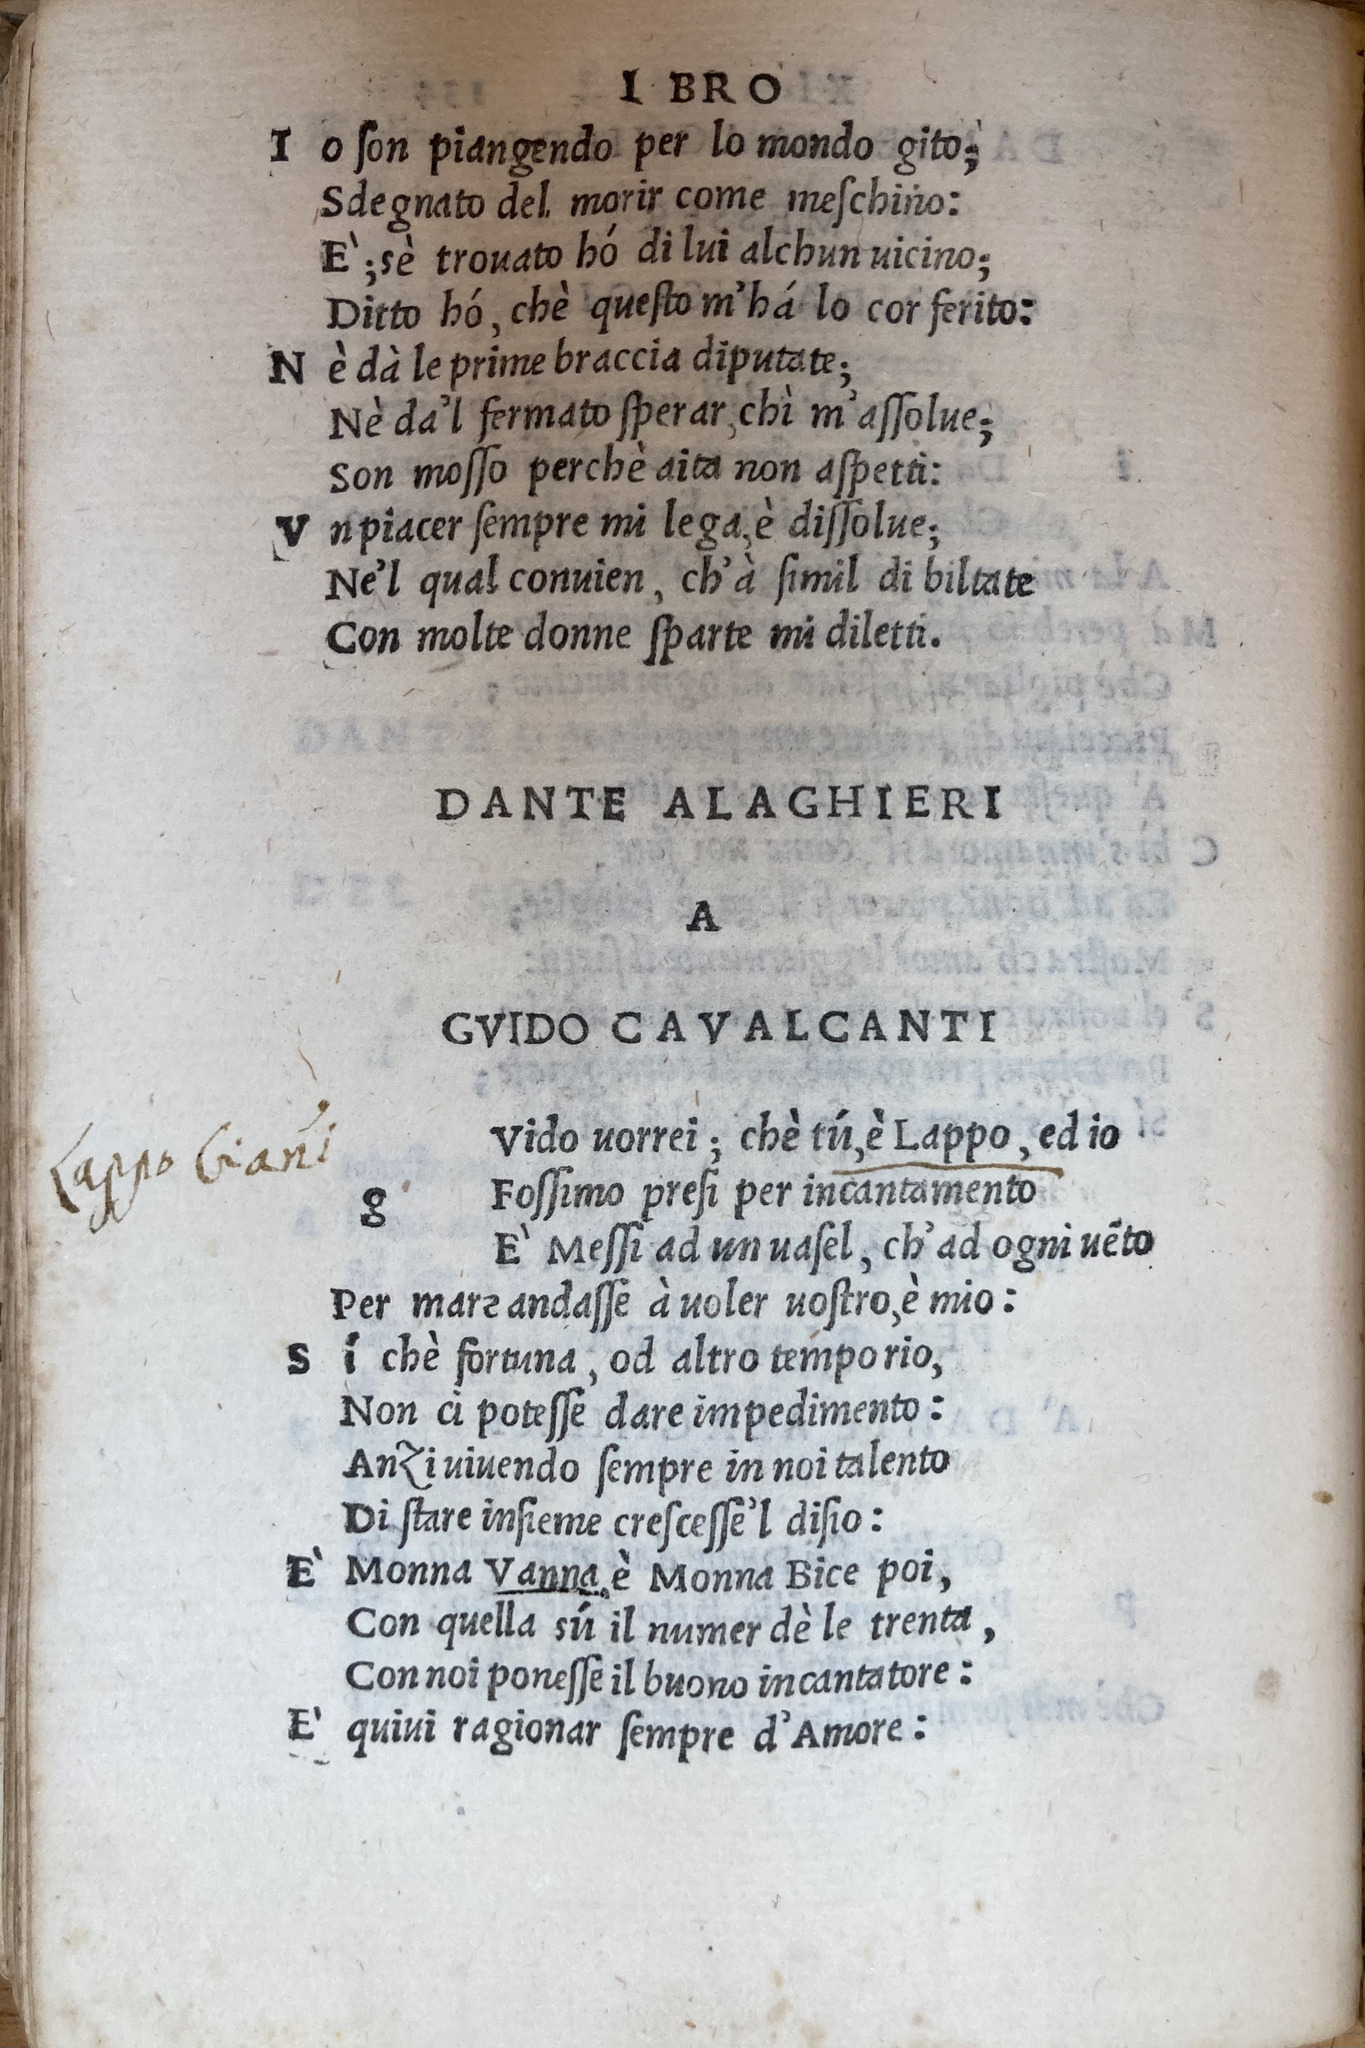 I BRO
I o ſon piangendo per lo mondo gito;
Sdegnato del morir come meſchino:
E`; sè trouato hó di lui alchun uicino;
Ditto hó, chè queſto m'há lo cor ferito:
N è dà le prime braccia diputate;
Nè da'l fermato ſperar, chì m'aſſolue;
Son moſſo perchè aita non aſpetti:
V n piacer ſempre mi lega, è diſſolue;
Ne'l qual conuien, ch'à ſimil di biltate
Con molte donne ſparte mi diletti.
DANTE ALAGHIERI
A
GVIDO CAVALCANTI
Lappo Gianni
g Vido uorrei; chè tú, è Lappo, ed io
Foſſimo preſi per incantamento
E` Meſſi ad un uaſel, ch'ad ogni uẽto
Per mare andaſſe à uoler uoſtro, è mio:
S í chè fortuna, od altro tempo rio,
Non ci poteſſe dare impedimento:
Anzi uiuendo ſempre in noi talento
Di ſtare inſieme creſceſſe'l diſio:
E` Monna Vanna, è Monna Bice poi,
Con quella sú il numer dè le trenta,
Con noi poneſſe il buono incantatore:
E` quiui ragionar ſempre d'Amore: